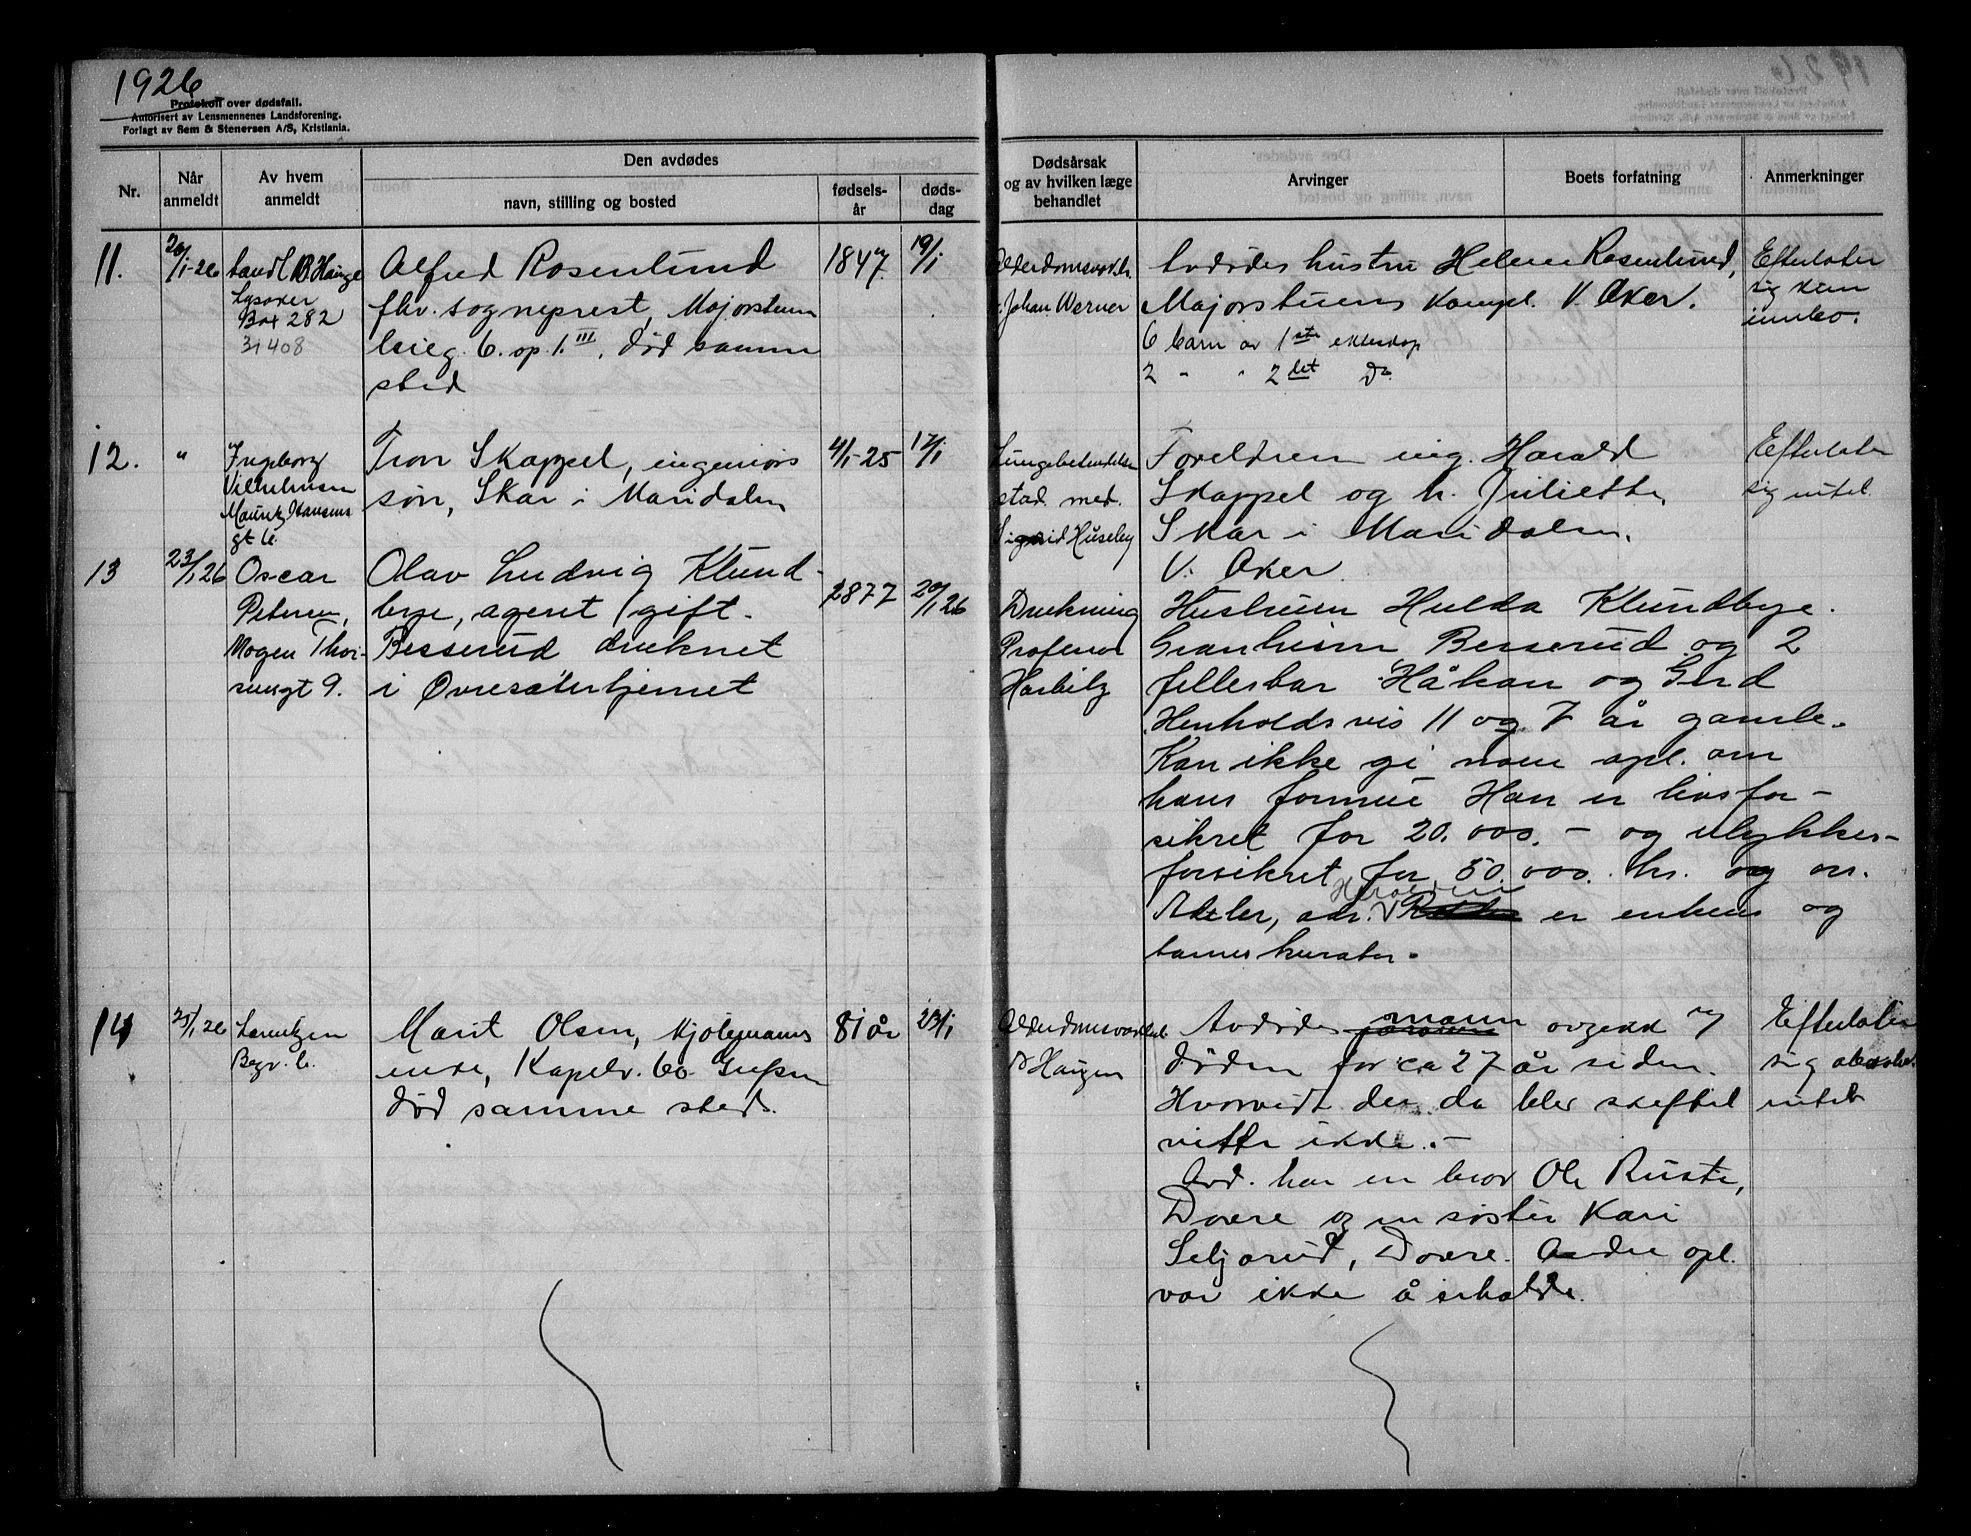 1926
Protokoll over dødsfall.
Autorisert av Lensmennenes Landsforening.
Forlagt av Sem & Stenersen A/S, Kristiania.
Nr.
Når anmeldt
Av hvem anmeldt
Den avdødes
navn, stilling og bosted
fødsels-år
døds-dag
Dødsårsak og av hvilken læge behandlet
Arvinger
Boets forfatning
Anmerkninger
11.
20/1-26
Lysaker
Box 282
31408
Alfred Rosenlund
fhv. sogneprest, Majorstuen
6. op. 1. III, død samme
sted
1847
19/1
Johan Werner
Avdødes hustru Helene Rosenlund,
Majorstuens Kompl. V. Aker.
6 barn av 1ste ekteskap
2 " " 2det Do
Efterlater
sig kun
innbo.
12.
"
Ingeborg
Vilhelmsen
Mauritz Hansens
gt 6.
Tron Skappel, ingeniørs
søn, Skar i Maridalen
4/1-25
17/1
Lungebetendelse
stad. med.
Sigrid Huseby
Foreldrene ing. Harald
Skappel og h. Juliette,
Skar i Maridalen.
V. Aker.
Efterlater
sig intet.
13
23/1 26
Oscar
Petersen,
Mogen Thor-
sensgt 9.
Olav Ludvig Klund-
bye, agent, gift.
Besserud druknet
i Øvresætertjernet
1877
20/1 26
Drukning
Professor
Harbitz
Hustruen Hulda Klundbye.
Granheim Besserud og 2
fellesbar Håkon og Gerd
Henholdsvis 11 og 7 år gamle.
Kan ikke gi noen opl. om
hans formue Han er livsfor-
sikret for 20.000.- og ulykkes-
forsikret for 50.000. kr. og
Adeler, adr. er enkens og
barnes kurator.
14
25/1 26
Lorentzen
Begr. b.
Marit Olsen, Hjolemanns
enke, Kapelv. 60 Grefsen
død samme sted.
81 år
23/1
Alderdomsvakkel
Dr Haugen
Avdødes mann avgekk ved
døden for ca 27 år siden.
Hvorvidt der da blev skiftet
vites ikke.-
Avd. har en bror Ole Ruste,
Dovre og en søster Kari
Seljorud, Dovre. Andre opl.
var ikke å erholde.
Efterlater
sig absolut
intet